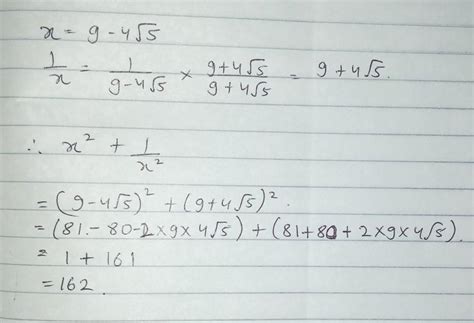 x = 9 - 4√5
1/x = 1/(9-4√5) × (9+4√5)/(9+4√5) = 9+4√5.
∴ x² + 1/x²
= (9-4√5)² + (9+4√5)².
= (81 - 80 - 2×9×4√5) + (81+80 + 2×9×4√5).
= 1 + 161
= 162.